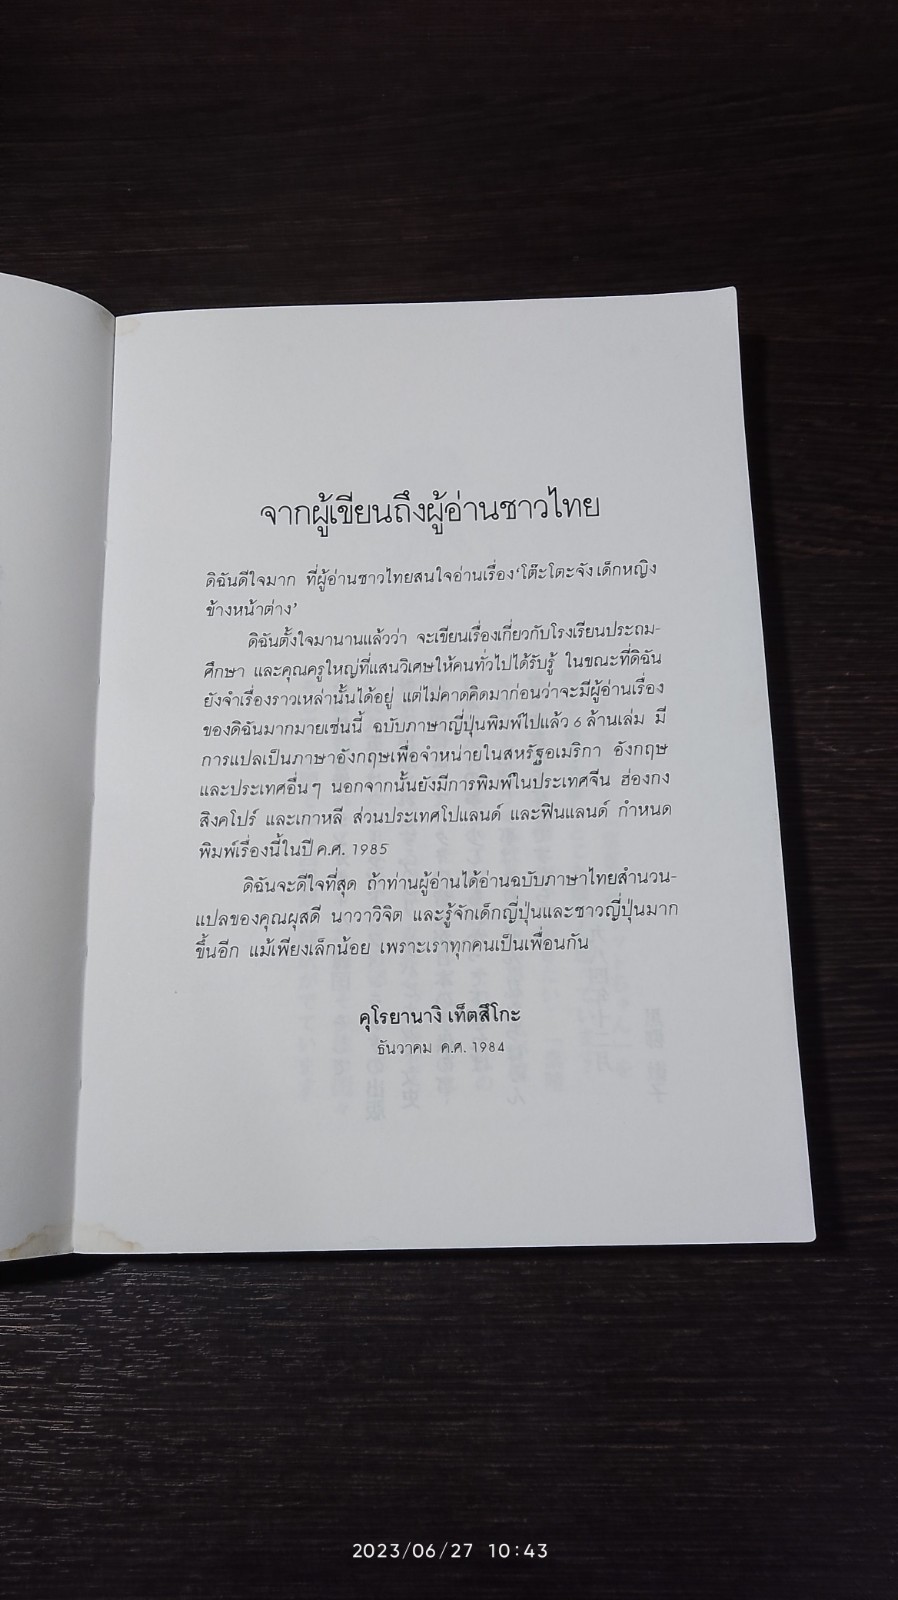 จากผู้เขียนถึงผู้อ่านชาวไทย
ดิฉันดีใจมาก ที่ผู้อ่านชาวไทยสนใจอ่านเรื่อง‘โต๊ะโตะจัง เด็กหญิง
ข้างหน้าต่าง’
ดิฉันตั้งใจมานานแล้วว่า จะเขียนเรื่องเกี่ยวกับโรงเรียนประถม-
ศึกษา และคุณครูใหญ่ที่แสนวิเศษให้คนทั่วไปได้รับรู้ ในขณะที่ดิฉัน
ยังจำเรื่องราวเหล่านั้นได้อยู่ แต่ไม่คาดคิดมาก่อนว่าจะมีผู้อ่านเรื่อง
ของดิฉันมากมายเช่นนี้ ฉบับภาษาญี่ปุ่นพิมพ์ไปแล้ว 6 ล้านเล่ม มี
การแปลเป็นภาษาอังกฤษเพื่อจำหน่ายในสหรัฐอเมริกา อังกฤษ
และประเทศอื่นๆ นอกจากนั้นยังมีการพิมพ์ในประเทศจีน ฮ่องกง
สิงคโปร์ และเกาหลี ส่วนประเทศโปแลนด์ และฟินแลนด์ กำหนด
พิมพ์เรื่องนี้ในปี ค.ศ. 1985
ดิฉันจะดีใจที่สุด ถ้าท่านผู้อ่านได้อ่านฉบับภาษาไทยสำนวน-
แปลของคุณผุสดี นาวาวิจิต และรู้จักเด็กญี่ปุ่นและชาวญี่ปุ่นมาก
ขึ้นอีก แม้เพียงเล็กน้อย เพราะเราทุกคนเป็นเพื่อนกัน
คุโรยานางิ เท็ตสึโกะ
ธันวาคม ค.ศ. 1984
2023/06/27 10:43